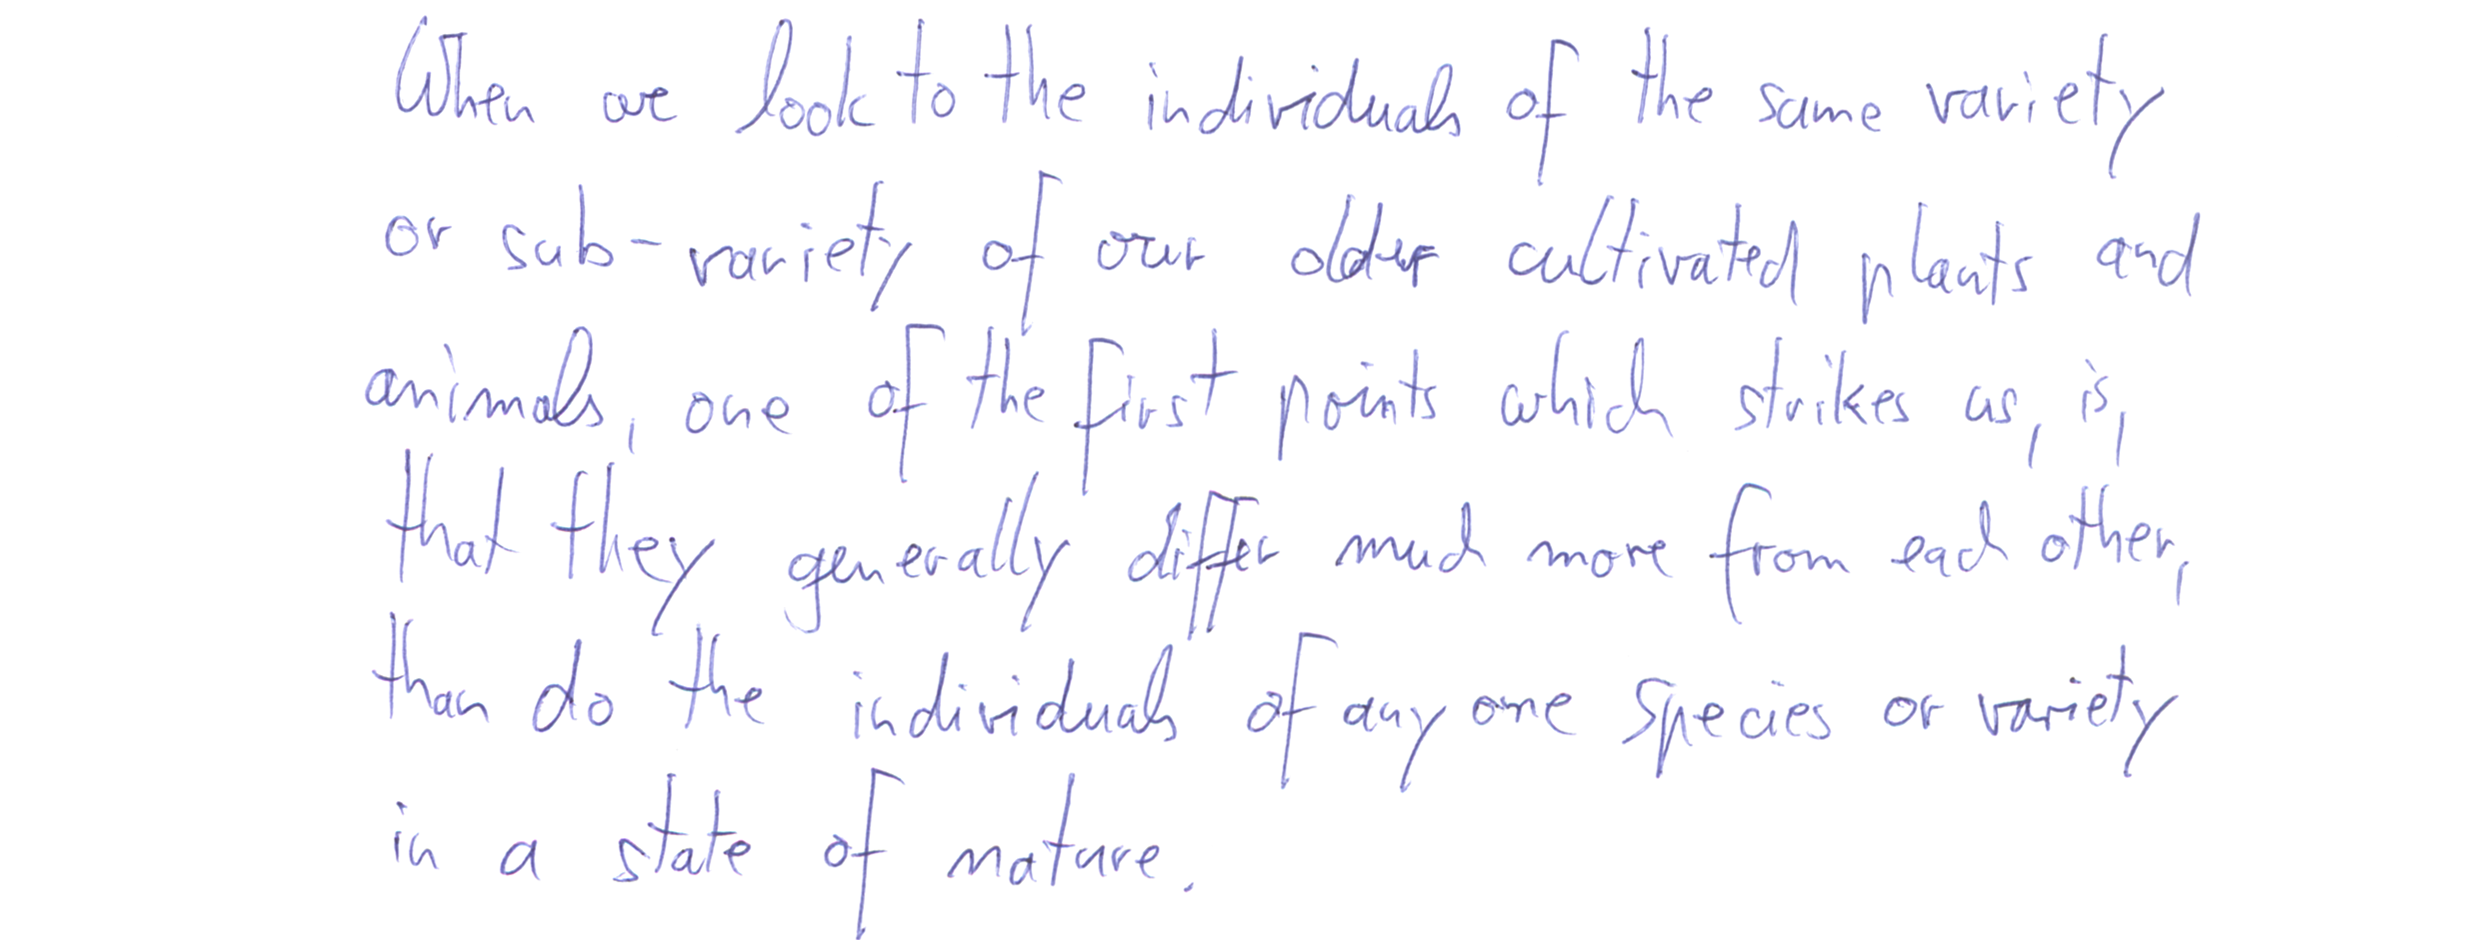 When we look to the individuals of the same variety
or sub-variety of our older cultivated plants and
animals, one of the first points which strikes us, is,
that they generally differ much more from each other,
than do the individuals of any one species or variety
in a state of nature.